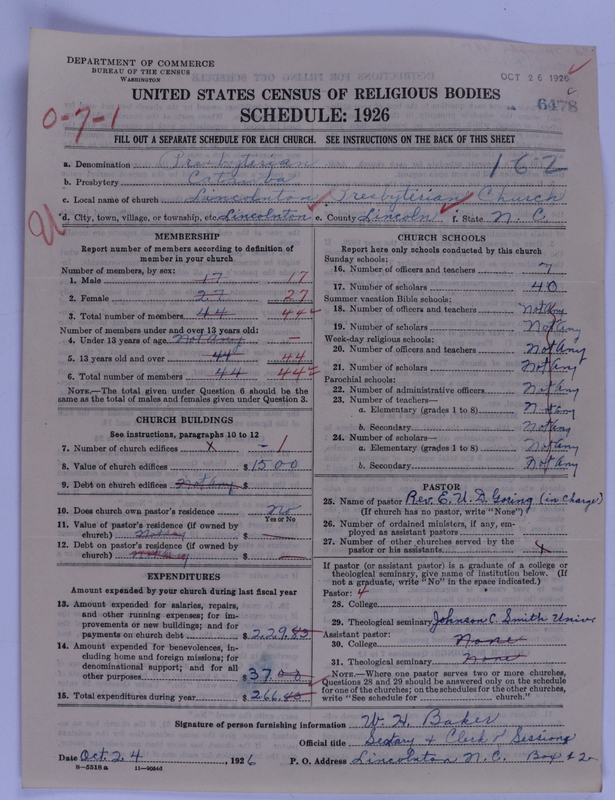 DEPARTMENT OF COMMERCE
BUREAU OF THE CENSUS
WASHINGTON
OCT 26 1926
UNITED STATES CENSUS OF RELIGIOUS BODIES
6478
SCHEDULE: 1926
0-7-1
FILL OUT A SEPARATE SCHEDULE FOR EACH CHURCH. SEE INSTRUCTIONS ON THE BACK OF THIS SHEET
a. Denomination Presbyterian 162
b. Presbytery Catawba
c. Local name of church Lincolnton Presbyterian Church
d. City, town, village, or township, etc. Lincolnton e. County Lincoln f. State N. C.
MEMBERSHIP
Report number of members according to definition of
member in your church
Number of members, by sex:
1. Male 17 17
2. Female 27 27
3. Total number of members 44 44
Number of members under and over 13 years old:
4. Under 13 years of age Not Any —
5. 13 years old and over 44 44
6. Total number of members 44 44
NOTE.—The total given under Question 6 should be the
same as the total of males and females given under Question 3.
CHURCH BUILDINGS
See instructions, paragraphs 10 to 12
7. Number of church edifices X 1
8. Value of church edifices $ 1500
9. Debt on church edifices Not Any $
10. Does church own pastor's residence No
Yes or No
11. Value of pastor's residence (if owned by
church) Not Any $ —
12. Debt on pastor's residence (if owned by
church) $ —
EXPENDITURES
Amount expended by your church during last fiscal year
13. Amount expended for salaries, repairs,
and other running expenses; for im-
provements or new buildings; and for
payments on church debt $ 229.85
14. Amount expended for benevolences, in-
cluding home and foreign missions; for
denominational support; and for all
other purposes $ 37.00
15. Total expenditures during year $ 266.
CHURCH SCHOOLS
Report here only schools conducted by this church
Sunday schools:
16. Number of officers and teachers 7
17. Number of scholars 40
Summer vacation Bible schools:
18. Number of officers and teachers Not Any
19. Number of scholars Not Any
Week-day religious schools:
20. Number of officers and teachers Not Any
21. Number of scholars Not Any
Parochial schools:
22. Number of administrative officers Not Any
23. Number of teachers—
a. Elementary (grades 1 to 8) Not Any
b. Secondary Not Any
24. Number of scholars—
a. Elementary (grades 1 to 8) Not Any
b. Secondary Not Any
PASTOR
25. Name of pastor Rev. E. U. D. Goring (in charge)
(If church has no pastor, write "None")
26. Number of ordained ministers, if any, em-
ployed as assistant pastors
27. Number of other churches served by the
pastor or his assistants X
If pastor (or assistant pastor) is a graduate of a college or
theological seminary, give name of institution below. (If
not a graduate, write "No" in the space indicated.)
Pastor: 4
28. College
29. Theological seminary Johnson C. Smith Univ
Assistant pastor:
30. College None
31. Theological seminary None
NOTE.—Where one pastor serves two or more churches,
Questions 28 and 29 should be answered only on the schedule
for one of the churches; on the schedules for the other churches,
write "See schedule for church."
Signature of person furnishing information W. H. Baker
Official title Sectary & Clerk of Sessions
Date Oct. 24, 1926 P. O. Address Lincolnton N. C. Box
8—5518 a 11—9054d